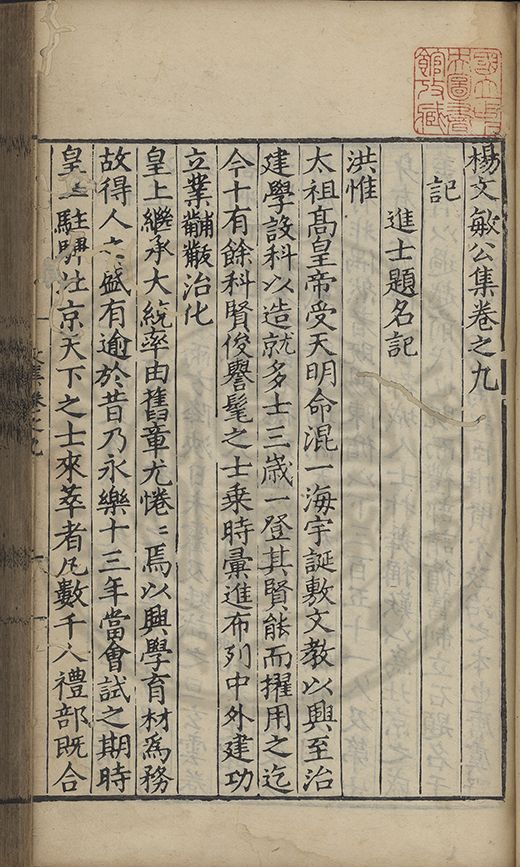 楊文敏公集卷之九
記
進士題名記
洪惟
太祖髙皇帝受天明命混一海宇誕敷文教以興至治
建學設科以造就多士三歳一登其賢能而擢用之迄
今十有餘科賢俊譽髦之士乗時彚進布列中外建功
立業黼黻治化
皇上繼承大統率由舊章尤惓〻焉以興學育材爲務
故得人之盛有逾於昔乃永樂十三年當會試之期時
皇上駐蹕北京天下之士來萃者凡數千人禮部既合